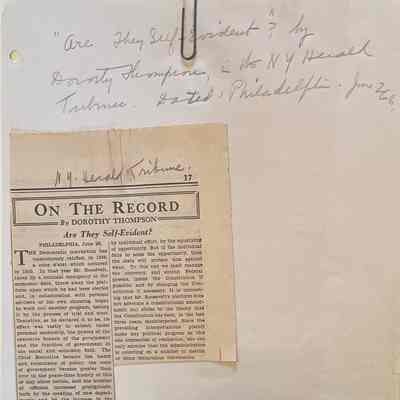 "Are They Self-Evident"? by
Dorothy Thompson, in the N Y Herald
Tribune. Dated, Philadelphia. June 26.
N.Y. Herald Tribune.
17
ON THE RECORD
By DOROTHY THOMPSON
Are They Self-Evident?
PHILADELPHIA, June 26.
THE Democratic convention has
in 1936,
a coup d'etat which occurred
in 1933. In that year Mr. Roosevelt,
faced by a colossal emergency in the
economic field, threw aside the plat-
form upon which he had been elected
and, in collaboration with personal
advisers of his own choosing, began
to work out another program, testing
it by the process of trial and error.
Tentative, as he declared it to be, its
effort was tacitly to extend, under
personal leadership, the powers of the
executive branch of the government
and the function of government in
the social and economic field. The
Chief Executive became the head
and fountain of policy; the costs
of government became greater than
ever in the peace-time history of this
or any other nation, and the number
of officials increased prodigiously,
both by the creating of new depart-
by individual effort, by the equalizing
of opportunity. But if the individual
fails to seize the opportunity, then
the state will protect him against
want. To this end we must manage
the currency and extend Federal
powers, inside the Constitution if
possible and by changing the Con-
stitution if necessary. It is interest-
ing that Mr. Roosevelt's platform does
not advocate a constitutional amend-
ment but clings to the theory that
the Constitution has been, in the last
three years, misinterpreted. Since the
prevailing interpretations plainly
make any political program as this
one impossible of realization, one can
only assume that the administration
is counting on a number of deaths
or other fortuitous